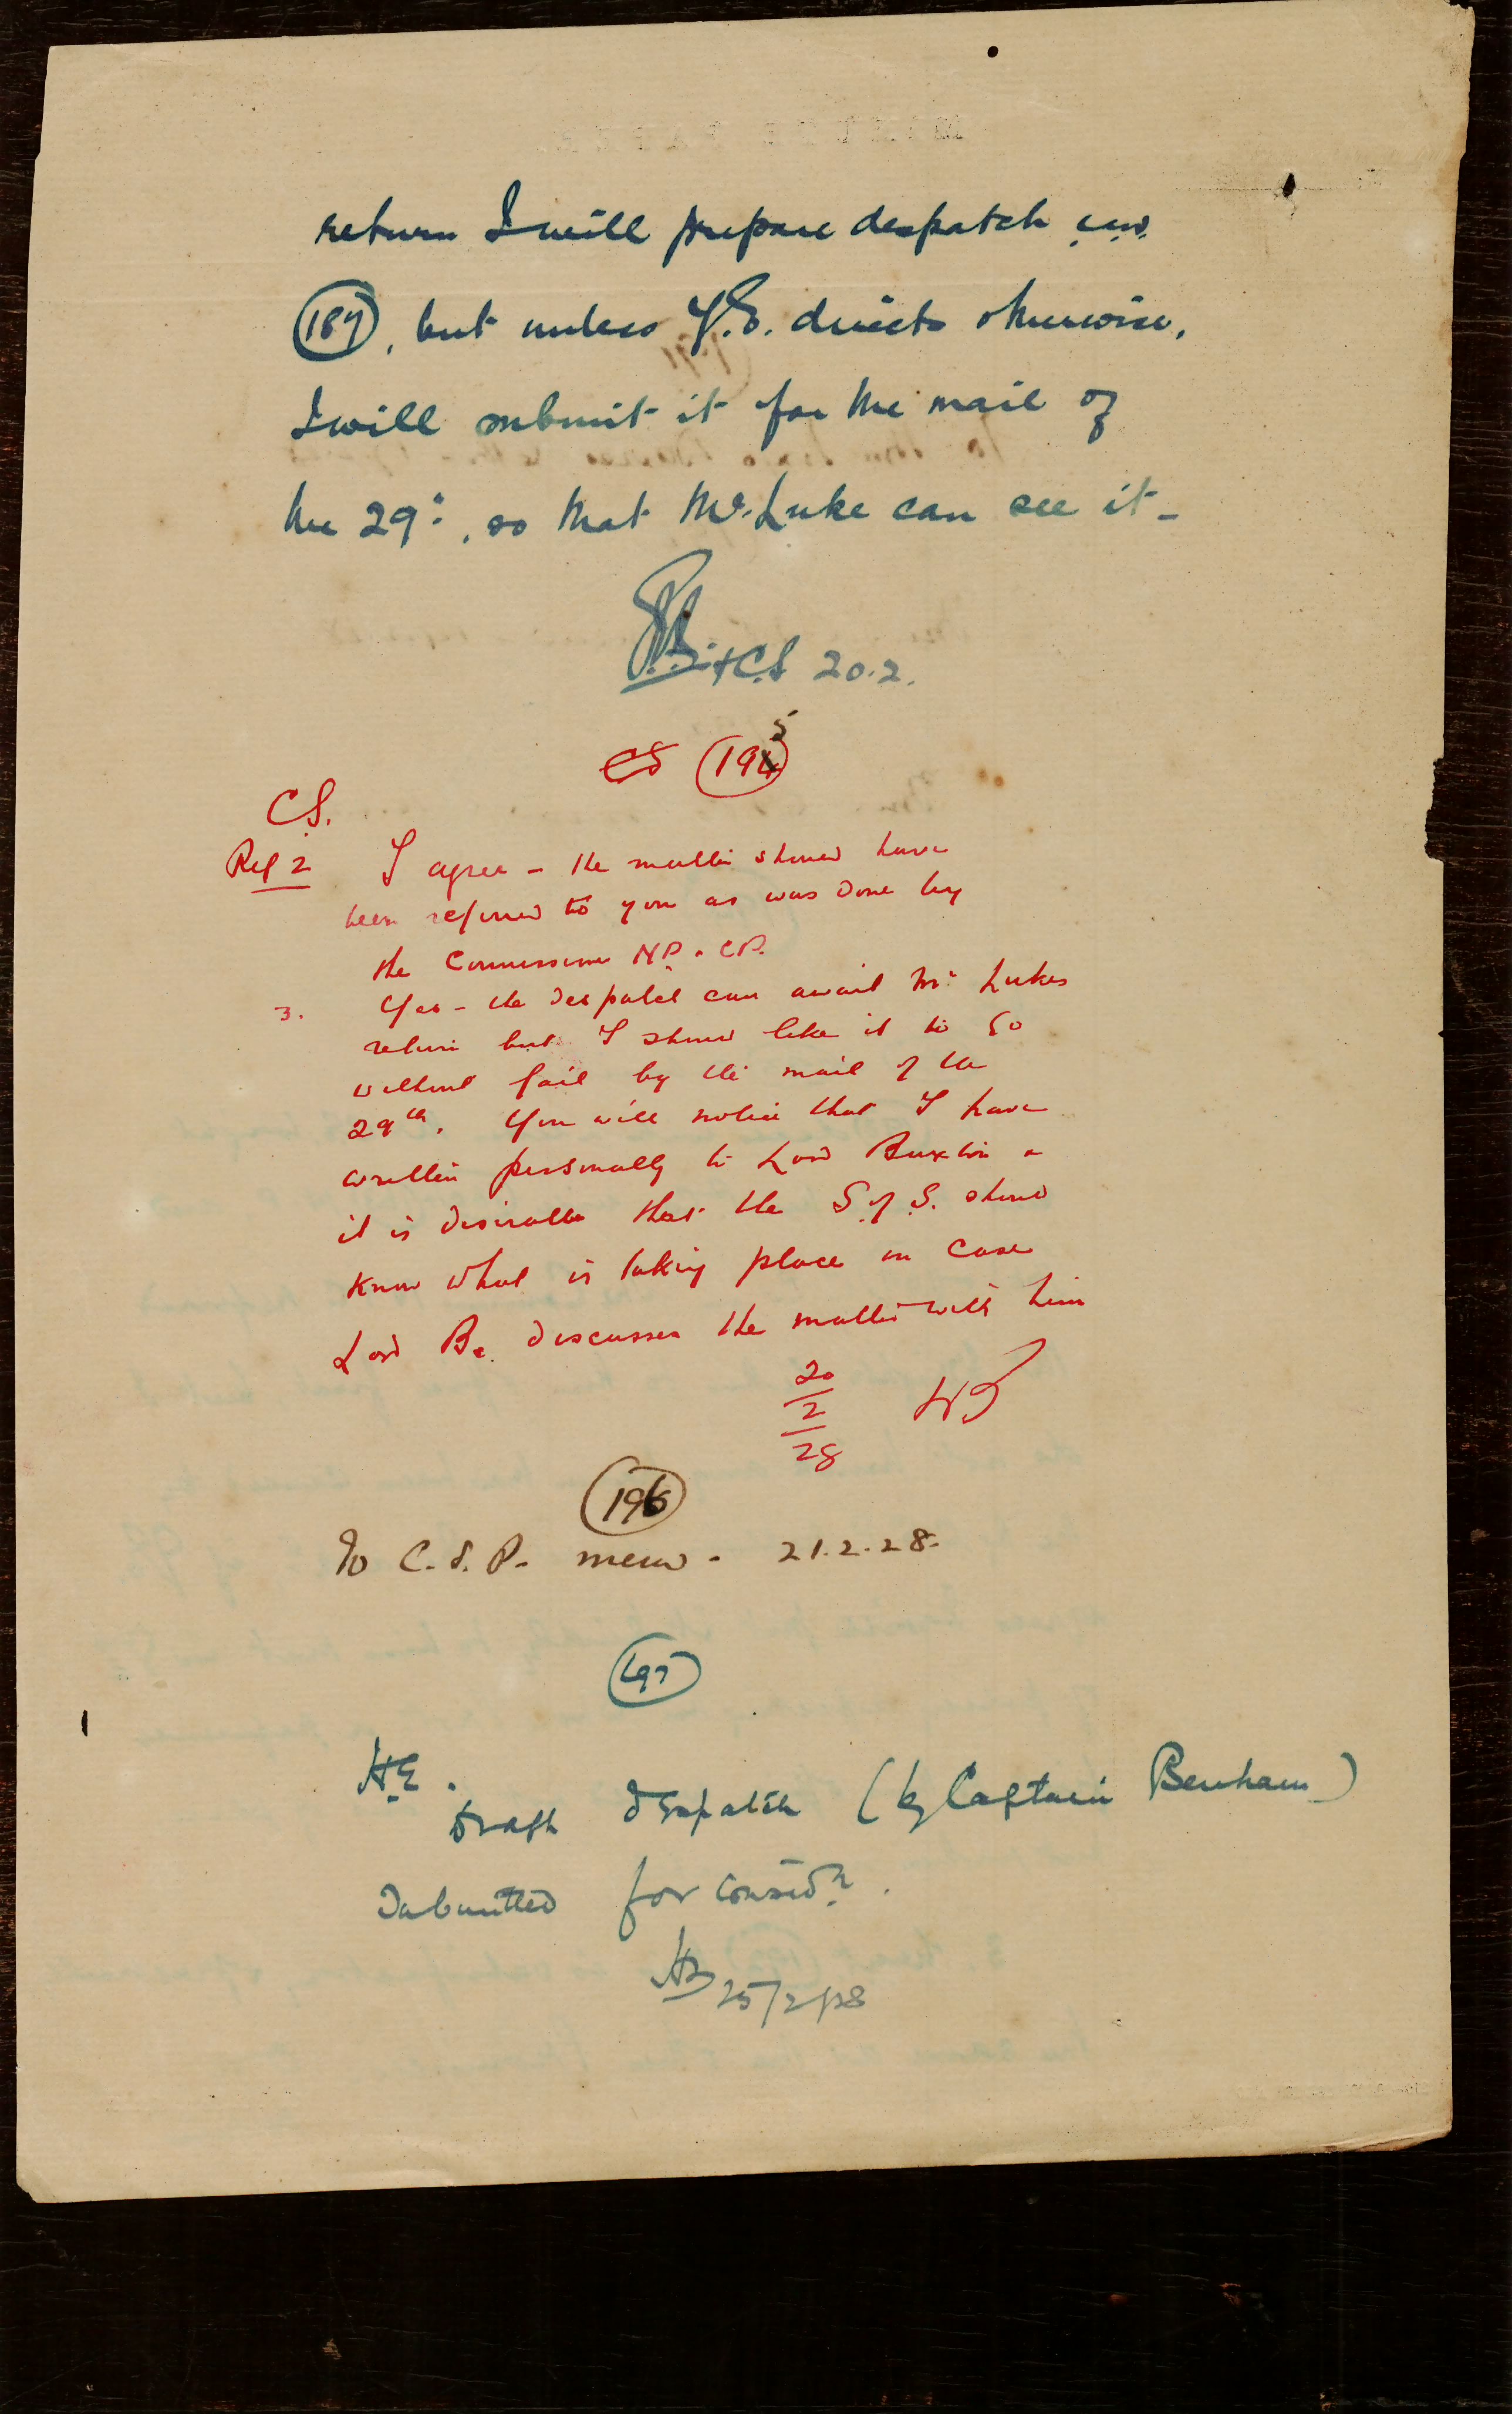 return I will prepare despatch
(187), but unless Y.E. directs otherwise,
I will submit it for the mail of
the 29th, so that Mr. Luke can see it -
C.S 20.2.
CS (195)
C.S.
Ref 2 I agree - the matter should have
been referred to you as was done by
the Commissioner N.P. & C.P.
3. Yes - the despatch can await Mr Lukes
return but I should like it to go
without fail by the mail of the
29th. You will notice that I have
written personally to Lord Buxton &
it is desirable that the S of S. should
know what is taking place in case
Lord B. discusses the matter with him
20
2
28
(196)
To C.S.P. memo - 21.2.28.
(197)
H.E.
Draft despatch (by Captain Benham)
submitted for consdn.
25/2/28